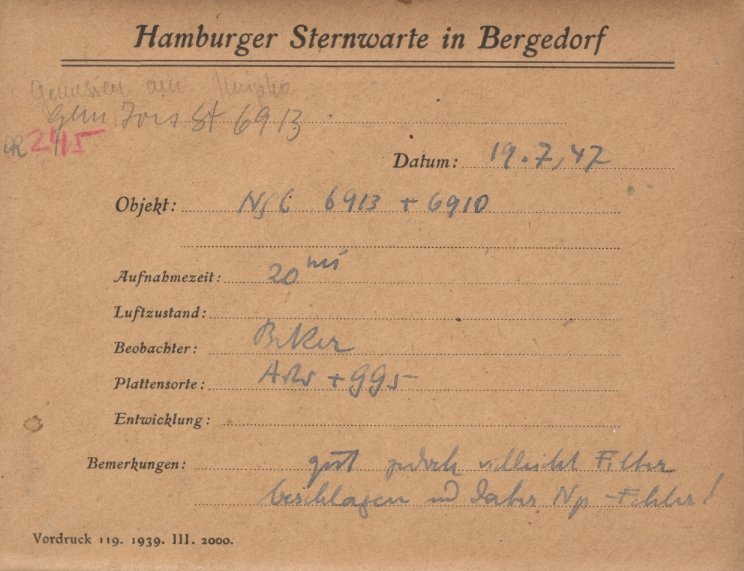 Hamburger Sternwarte in Bergedorf
Gemessen am
Gem. St 6913
245
Datum: 19.7.47
Objekt: NGC 6913 + 6910
Aufnahmezeit: 20
Luftzustand:
Beobachter: Beker
Plattensorte: + 995
Entwicklung:
Bemerkungen: gut jedoch vielleicht Filter
beschlagen und daher Np-Fehler!
Vordruck 119. 1939. III. 2000.